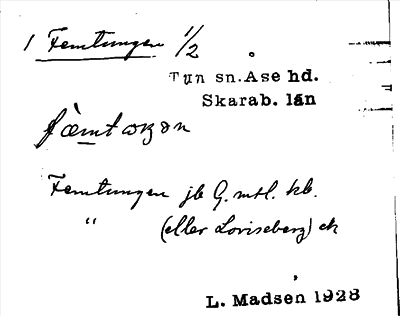 1 Femtungen 1/2
Tun sn. Åse hd.
Skarab. län
Femtungen jb G. mtl. kb.
" (eller Loviseberg) ek
L. Madsen 1928